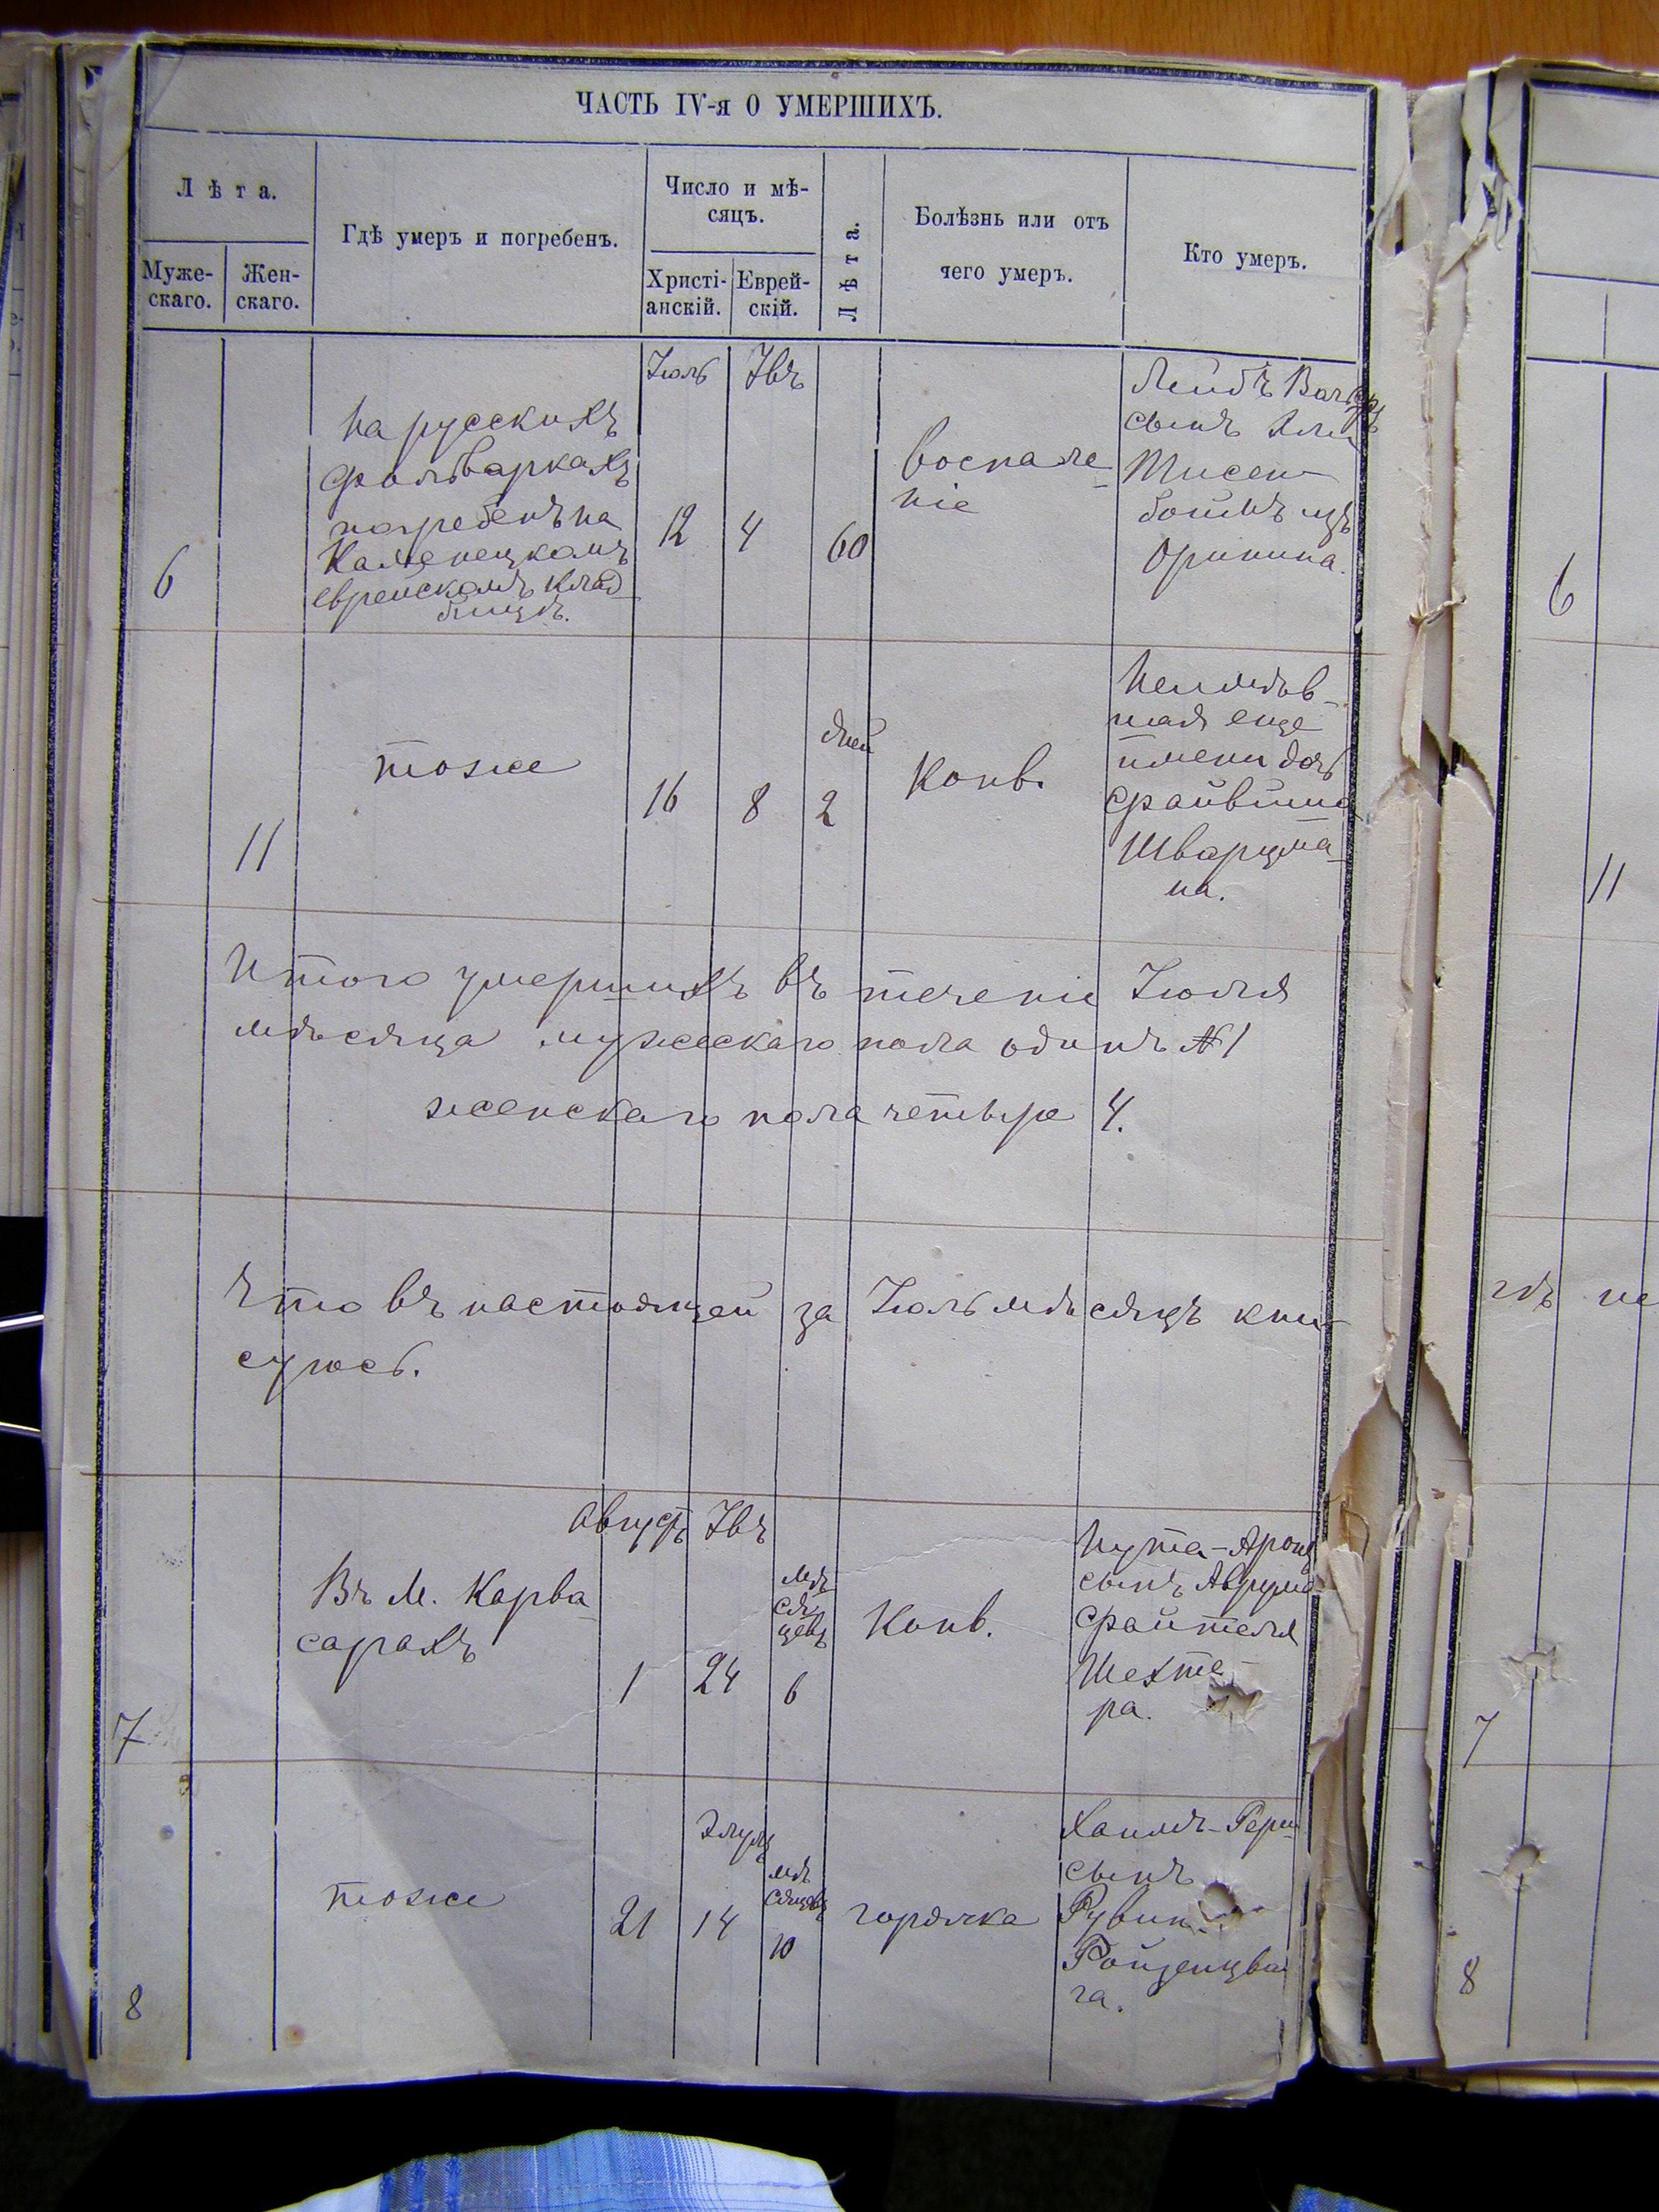 ЧАСТЬ IV-я О УМЕРШИХЪ.
Лѣта.
Муже-
скаго.
Жен-
скаго.
Гдѣ умеръ и погребенъ.
Число и мѣ-
сяцъ.
Христі-
анскій.
Еврей-
скій.
Лѣта.
Болѣзнь или отъ
чего умеръ.
Кто умеръ.
Іюль
6
На русскихъ
фольваркахъ
погребенъ на
Каменецкомъ
еврейскомъ клад-
бищѣ.
12
4
60
воспале-
ніе
Лейбъ
сынъ
боймъ изъ
Оринина.
6
11
тоже
16
8
дней
2
Конв.
Неимѣв-
шая еще
имени дочь
Файвиша
Шварцма-
на.
11
Итого умершихъ въ теченіи Іюля
мѣсяца мужескаго пола одинъ №1
женскаго пола четыре 4.
Что въ настоящей за Іюль мѣсяцъ кни-
суюсь.
Августъ
7
Въ М. Карва-
сарахъ
1
24
мѣ-
ся-
цевъ
6
Конв.
Нута-Аронъ
сынъ Аврума
Файтеля
Шехте-
ра.
7
8
тоже
21
Элулъ
14
мѣ-
сяцевъ
10
горячка
Хаимъ-Герш
сынъ
Рувина
Ройзенцвай-
га.
8